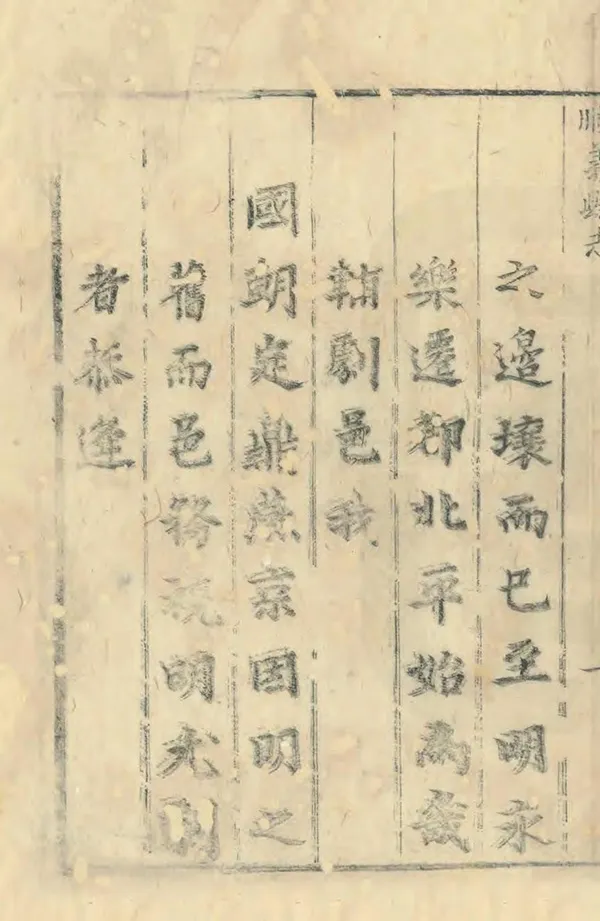 順義縣志
一
之邊壤而已至明永
樂遷都北平始為畿
輔劇邑我
國朝定鼎燕京因明之
舊而邑務視明尤劇
者恭逢